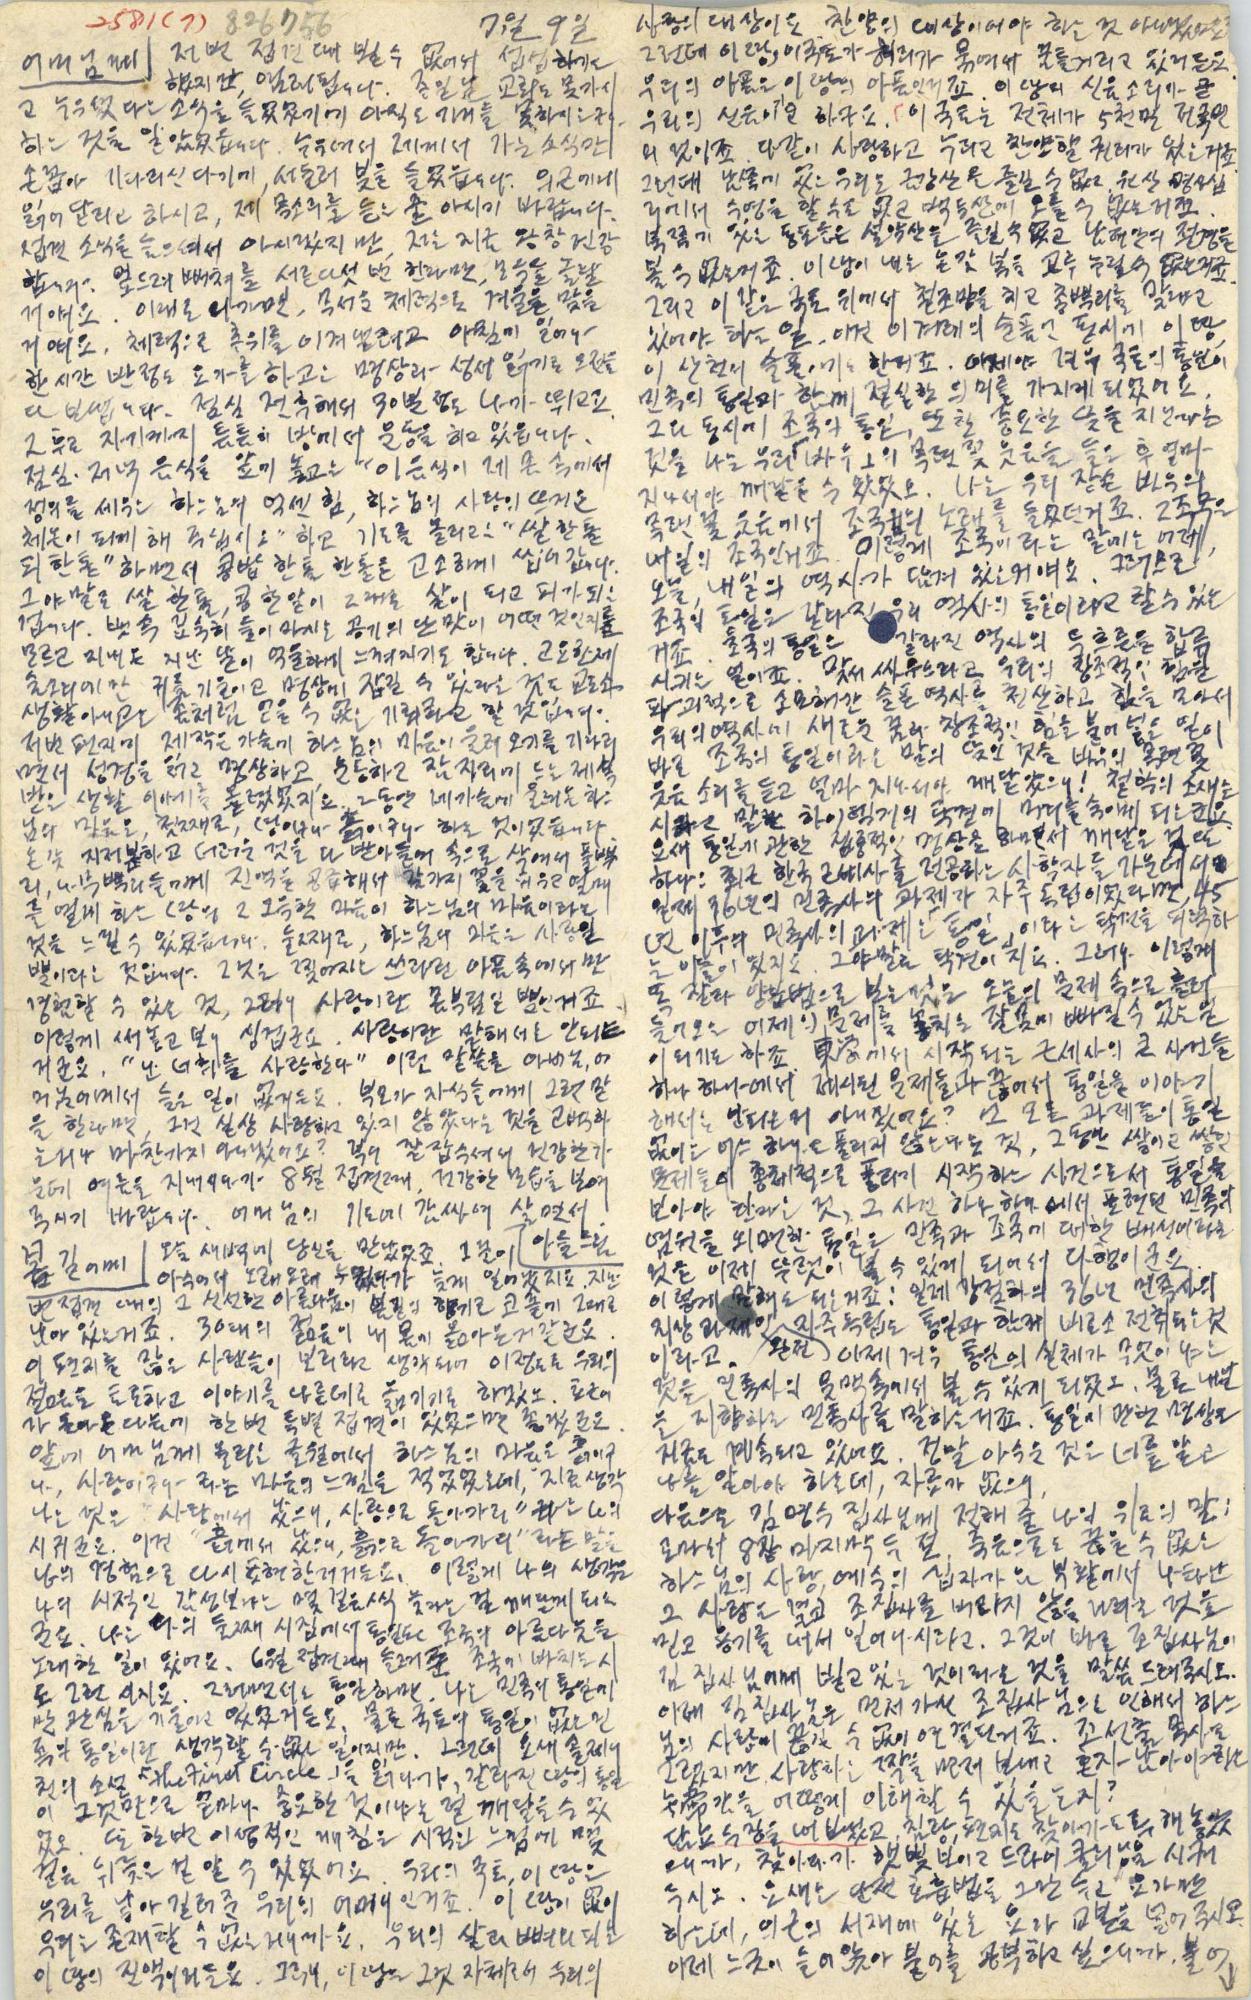 2581(7) 826756 7월 9일
어머님께 저번 접견 때 뵐 수 없어서 섭섭하기는
했지만,
고 누우셨다는 소식을 들었었기에 아직도 거동을 못하시는구나
하는 것을 알았었습니다. 누우셔서 제게서 가는 소식만
손꼽아 기다리신다기에, 서둘러 붓을 들었습니다. 의근에게
읽어 달라고 하시고, 제 목소리를 듣는 줄 아시기 바랍니다.
접견 소식을 들으셔서 아시겠지만, 저는 지금 왕창 건강
합니다. 엎드려 뻗쳐를 서른다섯 번 하다면, 모두들 놀랄
거예요. 이대로 나가면, 무서운 체력으로 겨울을 맞을
거예요. 체력으로 추위를 이겨 보려고 아침에 일어나
한 시간 반 정도 요가를 하고는 명상과 성서 읽기로 오전을
다 보냅니다. 점심 전후해서 30분 정도 나가 뛰고요.
그 후로 자기까지 틈틈히 방에서 운동을 하고 있습니다.
점심·저녁 음식을 앞에 놓고는 "이 음식이 제 몸 속에서
정의를 세우는 하느님의 억센 힘, 하느님의 사랑의 뜨거운
체온이 되게 해 주십시오" 하고 기도를 올리고는 "쌀 한톨
피 한톨" 하면서 콩밥 한톨 한톨을 고소하게 씹어 갑니다.
그야말로 쌀 한톨, 콩 한알이 그대로 살이 되고 피가 되는
겁니다. 뱃속 깊숙히 들이마시는 공기의 단 맛이 어떤 것인지를
모르고 지내온 지난 날이 억울하게 느껴지기도 합니다. 고요한 제
숨소리에만 귀를 기울이고 명상에 잠길 수 있다는 것도 교도소
생활 아니고는 좀처럼 얻을 수 없는 기회라고 할 것입니다.
저번 편지에 제 작은 가슴에 하느님의 마음이 울려 오기를 기다리
면서 성경을 읽고 명상하고 운동하고 잠자리에 드는 제 복
받은 생활 이야기를 드렸었지요. 그동안 제 가슴에 울려온 하느
님의 마음은, 첫째로, 땅이구나 흙이구나 하는 것이었습니다.
온갖 지저분하고 더러운 것을 다 받아들여 속으로 삭여서 풀뿌
리, 나무뿌리들에게 진액을 공급해서 갖가지 꽃을 피우고 열매
를 맺게 하는 땅의 그 모욕한 마음이 하느님의 마음이라는
것을 느낄 수 있었습니다. 둘째로, 하느님의 마음은 사랑일
뿐이라는 것입니다. 그것은 찢어지는 쓰라린 아픔 속에서만
경험할 수 있는 것, 그래서 사랑이란 몸부림일 뿐인 거죠.
이렇게 써 놓고 보니 싱겁군요. 사랑이란 말해서는 안되는
거군요. "난 너희를 사랑한다" 이런 말씀을 아버님, 어
머님에게서 들은 일이 없거든요. 부모가 자식들에게 그런 말
을 한다면, 그건 실상 사랑하고 있지 않았다는 것을 고백하
는 거나 마찬가지 아니겠어요? 부디 잘 잡수셔서 건강한 가
운데 여름을 지내시다가 8월 접견 때, 건강한 모습을 보여
주시기 바랍니다. 어머님의 기도에 감싸여 살면서. 아들 드림
봄길에게 오늘 새벽에 당신을 만났었죠. 그 꿈이
아쉬워서 오래오래 누웠다가 늦게 일어났지요. 지난
번 접견 때의 그 신선한 아름다움이 봄길의 향기로 코 끝에 그대로
남아 있는 거죠. 30대의 젊음이 내 몸에 돌아온 거 같군요.
이 편지를 많은 사람들이 보리라고 생각되어 이 정도로 우리의
젊음을 토로하고 이야기를 다른 데로 옮기기로 하겠소.
가 돌아온 다음에 한번 특별 접견이 있었으면 좋겠군요.
앞에 어머님께 올리는 글월에서 하느님의 마음은 흙이구
나, 사랑이구나 하는 마음의 느낌을 적었었는데, 지금 생각
나는 것은 "사랑에서 났으니, 사랑으로 돌아가리"라는 나의
시귀군요. 이건 "흙에서 났으니, 흙으로 돌아가라"라는 말을
나의 경험으로 다시 표현한 거거든요. 이렇게 나의 생각은
나의 시적인 감성보다는 몇 걸음씩 늦다는 걸 깨닫게 되는
군요. 나는 나의 둘째 시집에서 통일된 조국의 아름다움을
노래한 일이 있어요. 6월 접견 때 들려준 조국에 바치는 시
도 그런 시지요. 그러면서도 통일하면, 나는 민족의 통일에
만 관심을 기울이고 있었거든요. 물론 국토의 통일이 없는 민
족의 통일이란 생각할 수 없는 일이지만. 그런데 요새 솔제니
친의 소설 「The First Circle」을 읽다가, 갈라진 땅의 통일
이 그것만으로 얼마나 중요한 것이냐는 걸 깨달을 수 있
었소. 또 한번 이성적인 깨침은 시적인 느낌에 몇
걸음 뒤짐을 알 수 있었어요. 우리의 국토, 이 땅은
우리를 낳아 길러준 우리의 어머니인 거죠. 이 땅이 없이
우리는 존재할 수 없는 거니까요. 우리의 살과 뼈와 피는
이 땅의 진액이거든요. 그러니, 이 땅은 그것 자체로서 우리의
사랑의 대상이요 찬양의 대상이어야 하는 것 아니겠어요?
그런데 이 땅, 이 국토가 허리가 묶여서 꿈틀거리고 있거든요.
우리의 아픔은 이 땅의 아픔인 거죠. 이 땅의 신음소리가 곧
우리의 신음이 하구요. 이 국토는 전체가 5천만 전 국민
의 것이죠. 다같이 사랑하고 누리고 찬양할 권리가 있는 거죠.
그런데 남쪽에 있는 우리는 금강산을 즐길 수 없고 원산 명사십
리에서 수영을 할 수도 없고 백두산에 오를 수 없는 거죠.
북쪽에 있는 동포들은 설악산을 즐길 수 없고 남해안의 절경을
볼 수 없는 거죠. 이 땅이 내는 온갖 복을 고루 누릴 수 없는 거죠.
그리고 이 같은 국토 위에서 철조망을 치고 총부리를 맞대고
있어야 하는 일, 이건 이 겨레의 슬픔인 동시에 이 땅,
이 산천의 슬픔이기도 한 거죠. 이제야 겨우 국토의 통일이
민족의 통일과 함께 절실한 의미를 가지게 되었어요.
그와 동시에 조국의 통일, 또한 중요한 뜻을 지닌다는
것을 나는 우리 「바우」의 목련꽃 웃음을 들은 후 얼마
지나서야 깨달을 수 있었소. 나는 우리 장손 바우의
목련꽃 웃음에서 조국의 노래를 들었던 거죠. 그 조국은
내일의 조국인 거죠. 이렇게 조국이라는 말에는 어제,
오늘, 내일의 역사가 담겨 있는 거예요. 그러므로
조국의 통일은 갈라진 우리 역사의 통일이라고 할 수 있는
거죠. 조국의 통일은 갈라진 역사의 두 흐름을 합류
시키는 일이죠. 맞서 싸우느라고 우리의 창조적인 힘을
파괴적으로 소모해 간 슬픈 역사를 청산하고 힘을 모아서
우리의 역사에 새로운 꿈과 창조적인 힘을 불어 넣는 일이
바로 조국의 통일이라는 말의 뜻인 것을 바우의 목련꽃
웃음 소리를 듣고 얼마 지나서야 깨달았으니! 철학의 소재는
시라고 말한 하이덱거의 탁견에 머리를 숙이게 되는군요.
요새 통일에 관한 집중적인 명상을 하면서 깨달은 것 또
하나: 최근 한국 근세사를 전공하는 사학자들 가운데서
일제 36년의 민족사의 과제가 자주 독립이었다면, 45
년 이후의 민족사의 과제는 「통일」이다는 탁견을 피력하
는 이들이 있지요. 그야말로 탁견이지요. 그러나 이렇게
뚝 잘라 양분법으로 보는 것은 오늘의 문제 속으로 흘러
들어오는 어제의 문제를 놓치는 잘못에 빠질 수 있는 일
이 되기도 하죠. 東學에서 시작되는 근세사의 큰 사건들
하나 하나에서 제시된 문제들과 끊어서 통일을 이야기
해서는 안되는 거 아니겠어요? 모든 과제들이 통일
없이는 어느 하나도 풀리지 않는다는 것, 그동안 쌓이고 쌓인
문제들이 총체적으로 풀리기 시작하는 사건으로서 통일을
보아야 한다는 것, 그 사건 하나 하나에서 표현된 민족의
염원을 외면한 통일은 민족과 조국에 대한 배신이라는
것을 이제 뚜렷이 볼 수 있게 되어서 다행이군요.
이렇게 말해도 되는 거죠: 일제 강점하의 36년 민족사의
지상과제인 완전 자주 독립도 통일과 함께 비로소 전취되는 것
이라고. 이제 겨우 통일의 실체가 무엇이냐는
것을 민족사의 문맥 속에서 볼 수 있게 되었소. 물론 내일
을 지향하는 민족사를 말하는 거죠. 통일에 관한 명상은
지금도 계속되고 있어요. 정말 아쉬운 것은 너를 알고
나를 알아야 하는데, 자료가 없으니,
다음으로 김명수 집사님께 전해 줄 나의 위로의 말:
로마서 8장 마지막 두 절, 죽음으로도 끊을 수 없는
하느님의 사랑, 예수의 십자가와 부활에서 나타난
그 사랑은 결코 조집사를 버리지 않을 거라는 것을
믿고 용기를 내서 일어나시라고. 그것이 바로 조집사님이
김집사님에게 빌고 있는 것이라는 것을 말씀드려 주시오.
이제 김집사님은 먼저 가신 조집사님으로 인해서 하느
님의 사랑에 끊을 수 없이 연결된 거죠. 조선출 목사도
그렇지만 사랑하는 짝을 먼저 보내고 혼자 남아야 하는
누가 어떻게 이해할 수 있을는지?
담요 수장을 내보냈고, 침낭, 편지도 찾아가도록 해 놓았
으니까, 찾아다가 햇빛 보이고 드라이 클리닝을 시켜
두시오. 요새는 단전호흡법을 그만두고 요가만
하는데, 의근의 서재에 있는 요가 교본을 넣어 주시오.
이제 느긋이 들어앉아 불어를 공부하고 싶으니까, 불어